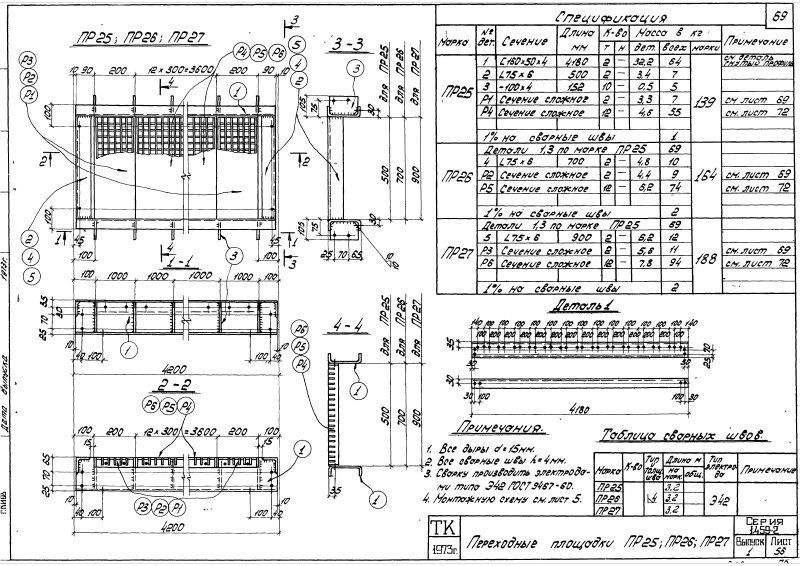 ПР25; ПР26; ПР27
3-3
для ПР25
для ПР26
для ПР27
10 90 200 12×300=3600 200 90 10
Р4 Р5 Р6 5 4 2
Р3
Р2
Р1
1
3
4
2
2
4
5
100
500
700
900
105
75
30
25 70 65
45
100
1-1
1000 1000 1000 1000
35
70
25
10 40 100
4200
2-2
Р6 Р5 Р4
100 200 12×300=3600 200 100
15
Р3 Р2 Р1
4200
4-4
Р6
Р5
Р4
35
Спецификация
69
Марка № дет. Сечение Длина мм К-во Масса в кг Примечание
т н дет. всех марки
ПР25 139
1 С160×50×4 4180 2 – 32,2 64
2 L75×6 500 2 – 3,4 7
3 -100×4 152 10 – 0,5 5
Р1 Сечение сложное 2 – 3,3 7 см. лист 69
Р4 Сечение сложное 12 – 4,6 55 см. лист 72
1% на сварные швы 1
ПР26 164
Детали 1,3 по марке ПР25 69
4 L75×6 700 2 – 4,8 10
Р2 Сечение сложное 2 – 4,4 9 см. лист 69
Р5 Сечение сложное 12 – 6,2 74 см. лист 72
1% на сварные швы 2
ПР27 188
Детали 1,3 по марке ПР25 69
5 L75×6 900 2 – 6,2 12
Р3 Сечение сложное 2 – 5,6 11 см. лист 69
Р6 Сечение сложное 12 – 7,8 94 см. лист 72
1% на сварные швы 2
Деталь 1
140 100 100 100 100 100 100 100 100 100 100 100 100 100 140
200 200 200 200 200 200 200 200 200 200 200 200
35
70
25
30
30 100 100 30
4180
Примечания.
1. Все дыры d=15мм.
2. Все сварные швы h=4мм.
3. Сварку производить электрода-
ми типа Э42 ГОСТ 9467-60.
4. Монтажную схему см. лист 5.
Таблица сварных швов.
Марка К-во Тип толщ шва Длина м на марк. общ. Тип электрода Примечание
ПР25 3.2
ПР26 3.2 Э42
ПР27 3.2
ТК
1973г.
Переходные площадки ПР25; ПР26; ПР27
Серия
1.459-2
Выпуск 1
Лист 56
Дата выпуска
1973г.